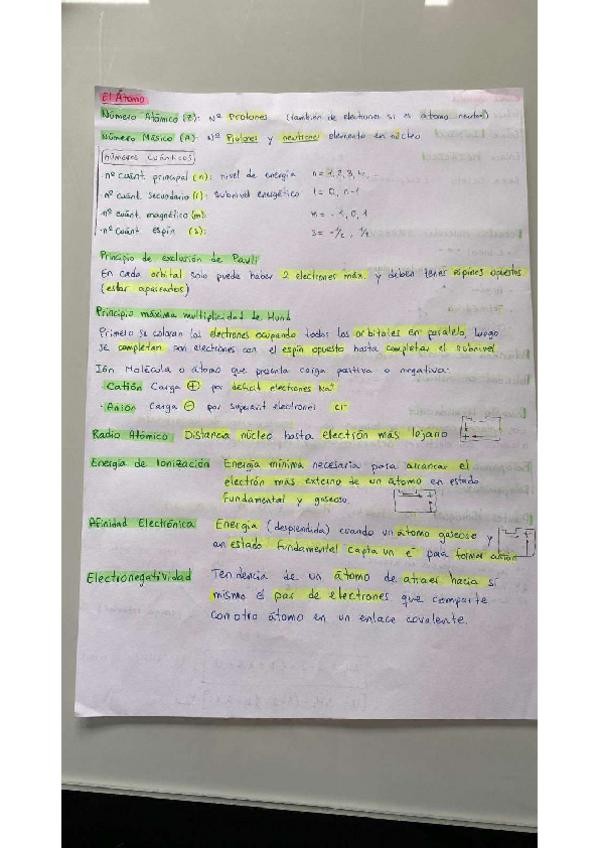 El Átomo
Número Atómico (Z): Nº Protones (también de electrones si es átomo neutro)
Número Másico (A): Nº Protones y neutrones elemento en núcleo
NÚMEROS CUÁNTICOS
·nº cuánt. principal (n): nivel de energía n=1,2,3,4,...
·nº cuánt. secundario (l): subnivel energético l=0, n-1
·nº cuánt. magnético (m): m= -1,0,1
·nº cuánt. espín (s): s=-1/2, 1/2
Principio de exclusión de Pauli
En cada orbital solo puede haber 2 electrones máx. y deben tener espines opuestos
(estar apareados)
Principio máxima multiplicidad de Hund
Primero se colocan los electrones ocupando todos los orbitales en paralelo, luego
se completan con electrones con el espín opuesto hasta completar el subnivel
Ión Molécula o átomo que presenta carga positiva o negativa:
·Catión Carga + por déficit electrones Na+
·Anión Carga - por superavit electrones Cl-
Radio Atómico Distancia núcleo hasta electrón más lejano
Energía de Ionización Energía mínima necesaria para arrancar el
electrón más externo de un átomo en estado
fundamental y gaseoso
Afinidad Electrónica Energía (desprendida) cuando un átomo gaseoso y
en estado fundamental capta un e- para formar anión
Electronegatividad Tendencia de un átomo de atraer hacia sí
mismo el par de electrones que comparte
con otro átomo en un enlace covalente.